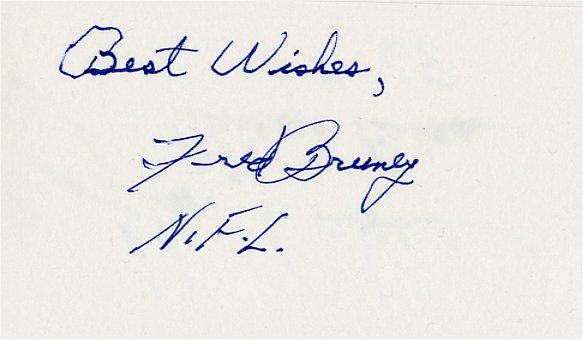 Best Wishes,
Fred Bruney
N.F.L.